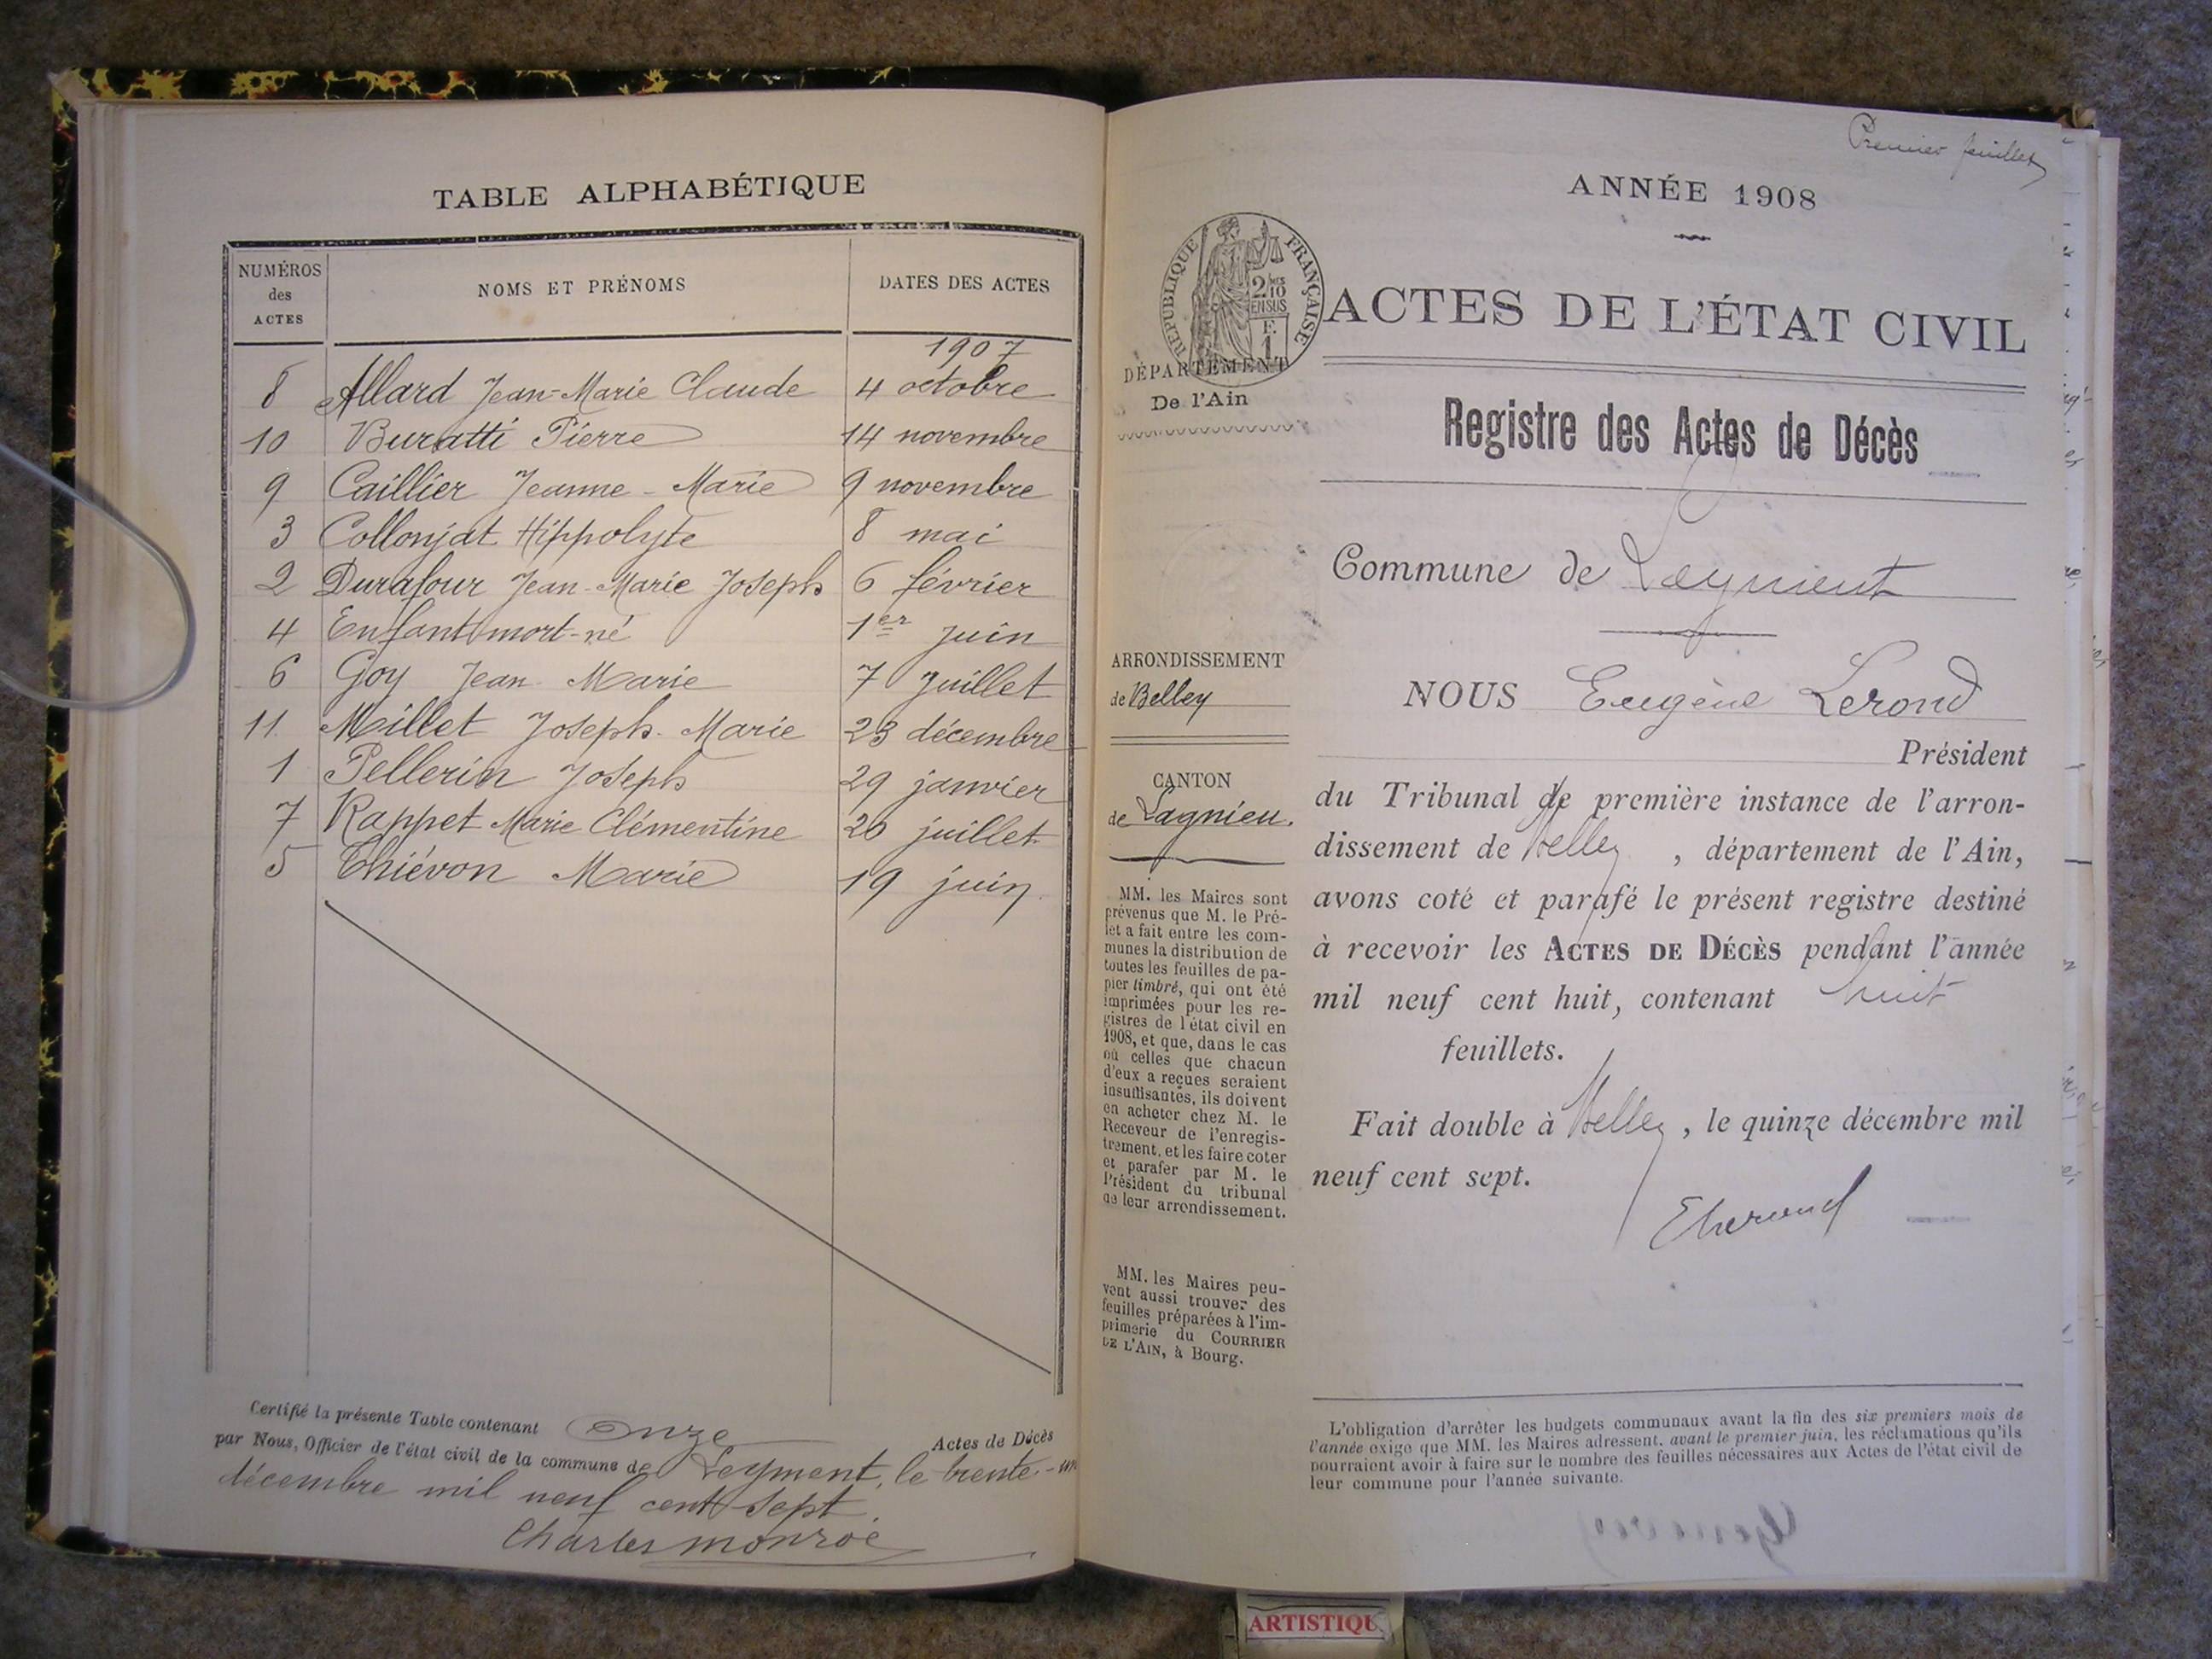 TABLE ALPHABÉTIQUE
NUMÉROS des ACTES
NOMS ET PRÉNOMS
DATES DES ACTES
1907
8 Allard Jean-Marie Claude 4 octobre
10 Buratti Pierre 14 novembre
9 Caillier Jeanne-Marie 9 novembre
3 Collonjat Hippolyte 8 mai
2 Durafour Jean-Marie Joseph 6 février
4 Enfant mort-né 1er juin
6 Goy Jean Marie 7 juillet
11 Millet Joseph-Marie 23 décembre
1 Pellerin Joseph 29 janvier
7 Rappet Marie Clémentine 20 juillet
5 Thiévon Marie 19 juin
Certifié la présente Table contenant Onze Actes de Décès
par Nous, Officier de l'état civil de la commune de Leyment, le trente-un
décembre mil neuf cent sept.
Charles Monroe
Premier feuillet
ANNÉE 1908
RÉPUBLIQUE FRANÇAISE
2/10
EN SUS
F.
1
ACTES DE L'ÉTAT CIVIL
DÉPARTEMENT
De l'Ain
Registre des Actes de Décès
Commune de Leyment
ARRONDISSEMENT
de Belley
CANTON
de Lagnieu.
MM. les Maires sont
prévenus que M. le Pré-
fet a fait entre les com-
munes la distribution de
toutes les feuilles de pa-
pier timbré, qui ont été
imprimées pour les re-
gistres de l'état civil en
1908, et que, dans le cas
où celles que chacun
d'eux a reçues seraient
insuffisantes, ils doivent
en acheter chez M. le
Receveur de l'enregis-
trement, et les faire coter
et parafer par M. le
Président du tribunal
de leur arrondissement.
MM. les Maires peu-
vent aussi trouver des
feuilles préparées à l'im-
primerie du COURRIER
DE L'AIN, à Bourg.
NOUS Eugène Lerond
Président
du Tribunal de première instance de l'arron-
dissement de Belley , département de l'Ain,
avons coté et parafé le présent registre destiné
à recevoir les ACTES DE DÉCÈS pendant l'année
mil neuf cent huit, contenant huit
feuillets.
Fait double à Belley , le quinze décembre mil
neuf cent sept.
L'obligation d'arrêter les budgets communaux avant la fin des six premiers mois de
l'année exige que MM. les Maires adressent, avant le premier juin, les réclamations qu'ils
pourraient avoir à faire sur le nombre des feuilles nécessaires aux Actes de l'état civil de
leur commune pour l'année suivante.
ARTISTIQU